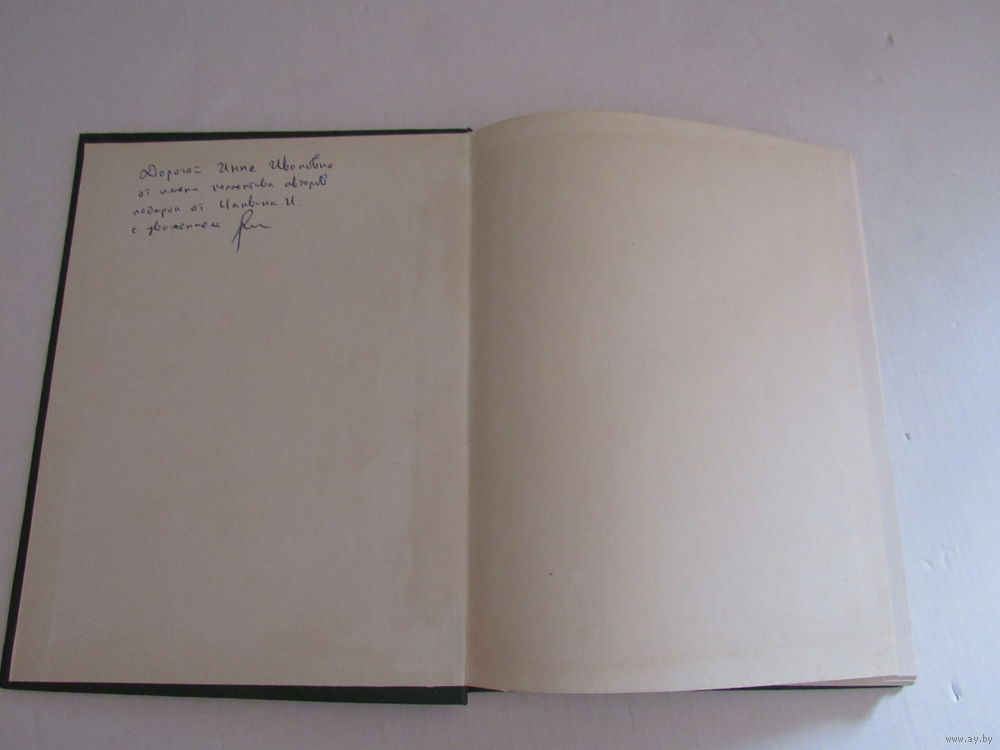 Дорогой Инне Ивановне
от имени коллектива авторов
подарок от И.
с уважением
www.ay.by